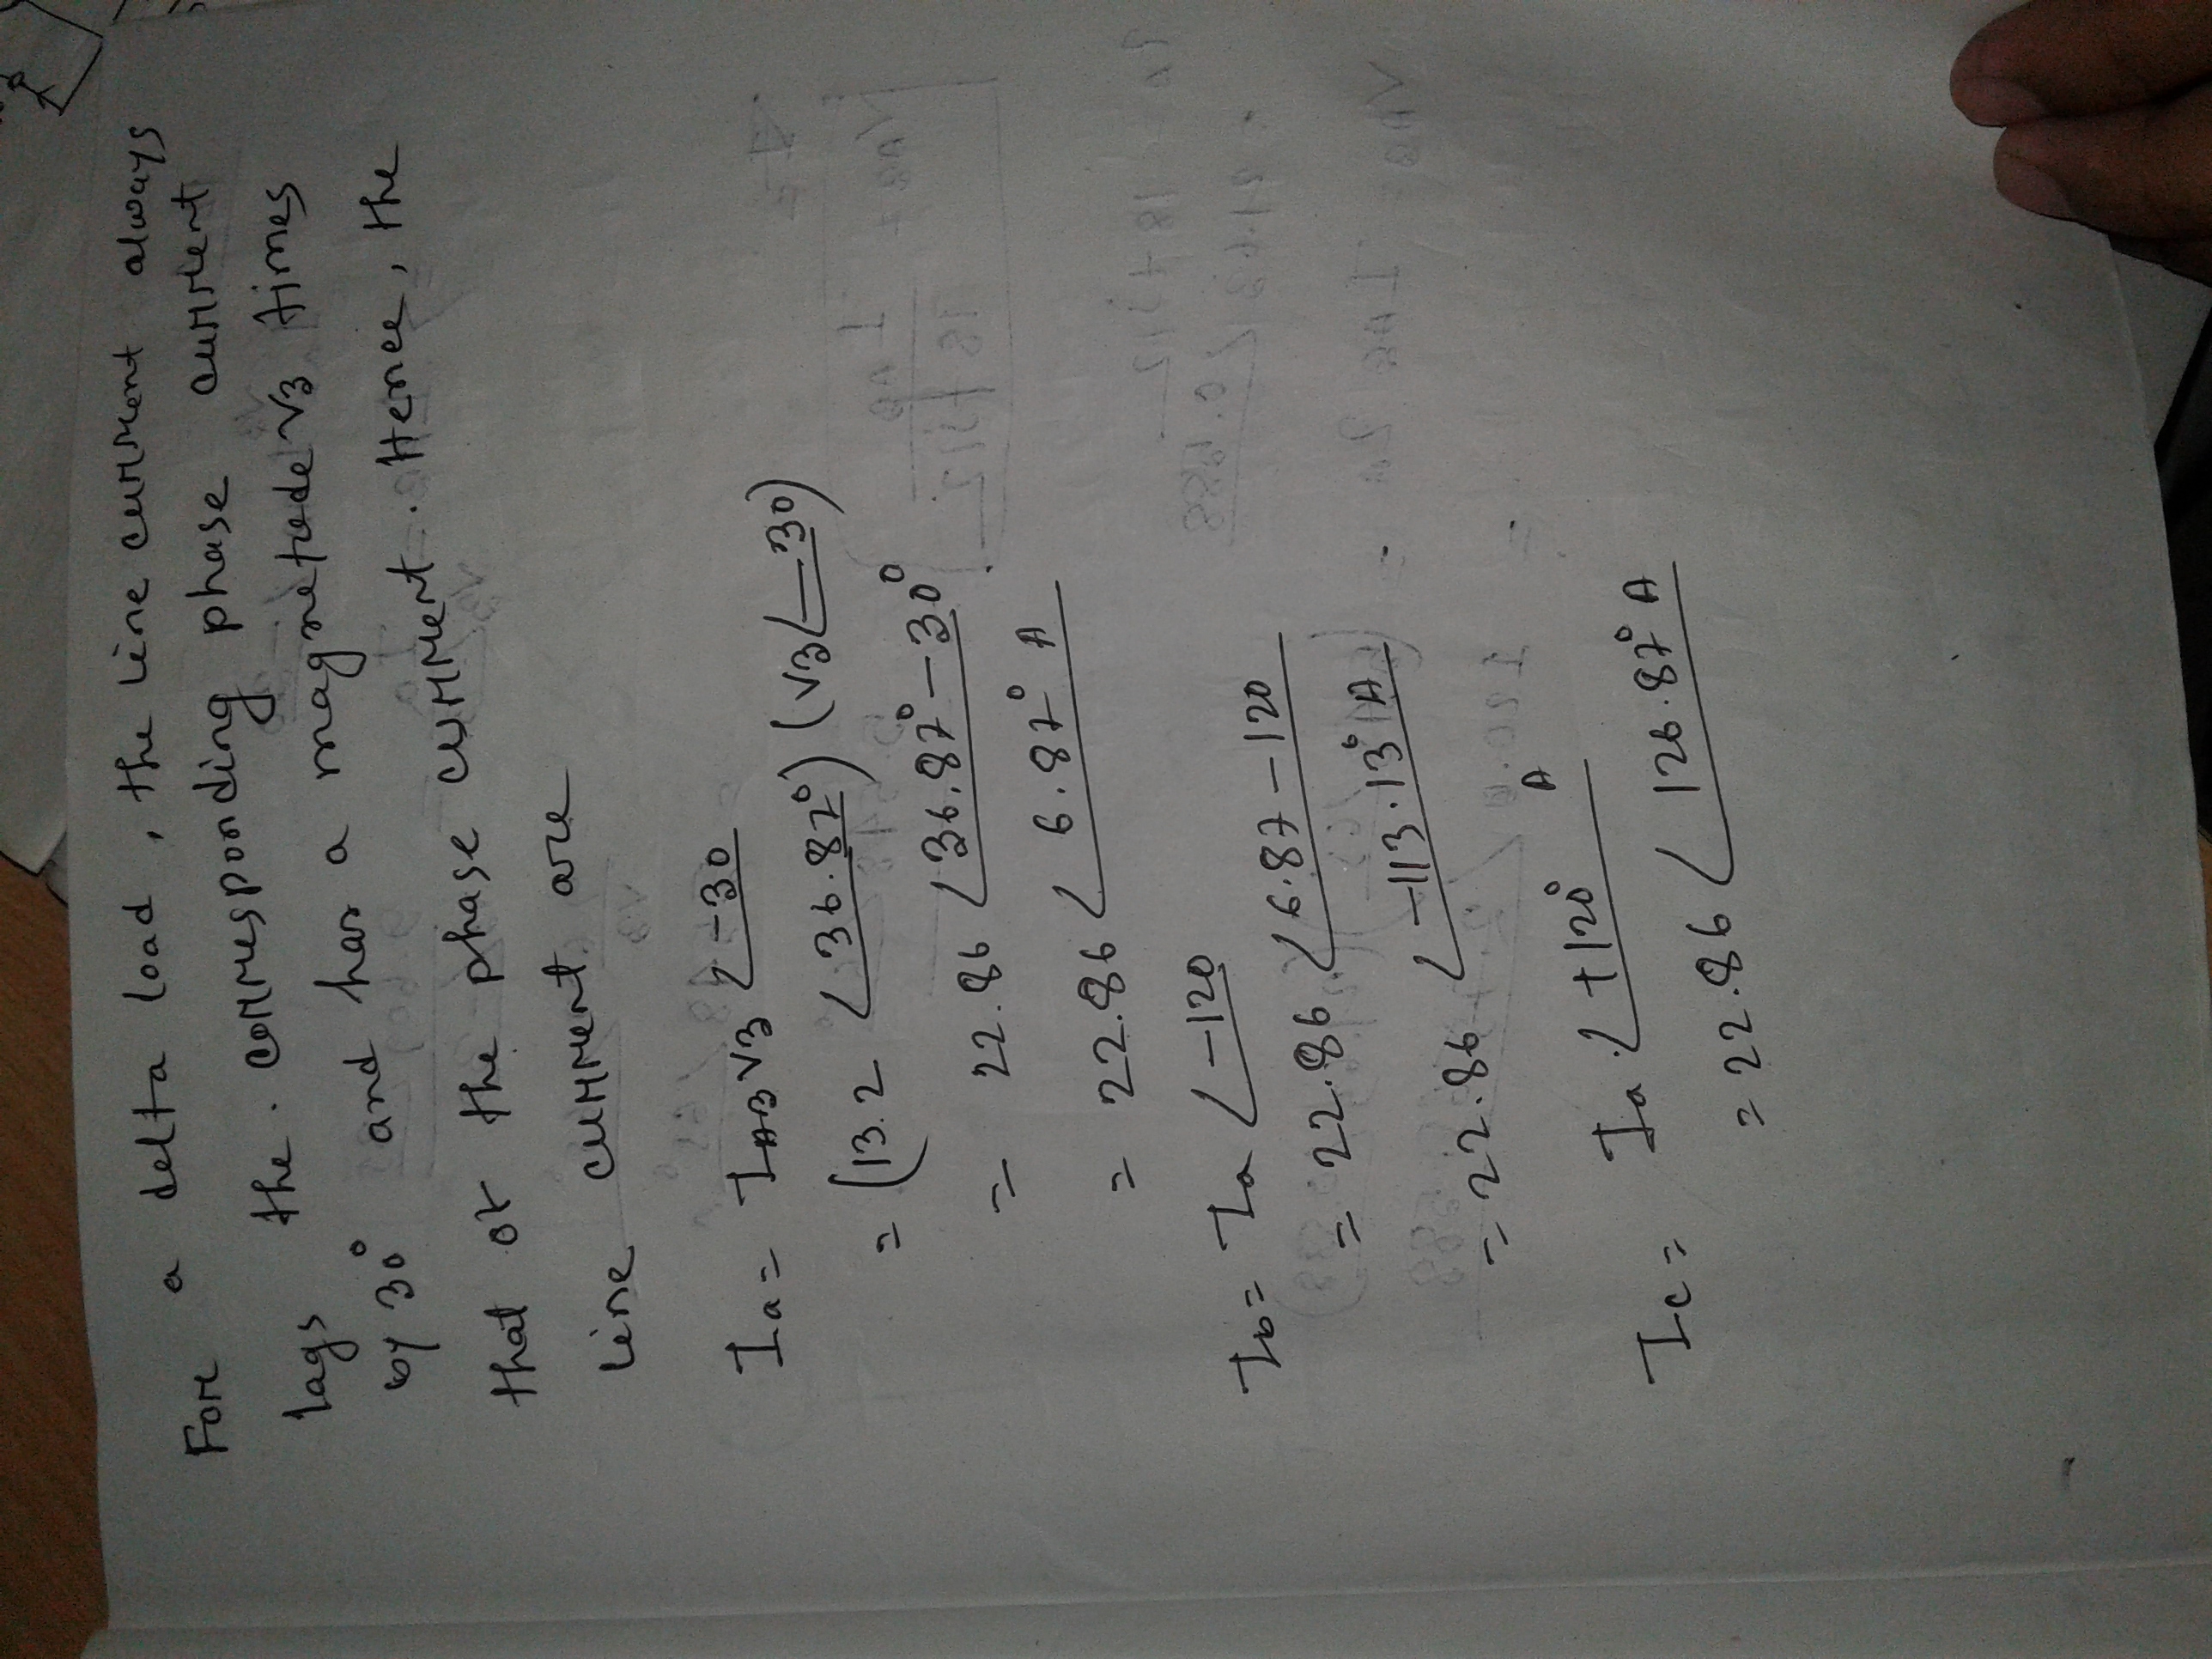 For a delta load, the line current always
lags the corresponding phase current
by 30° and has a magnetude √3 times
that of the phase current. Hence, the
line current are
Ia = IAB √3 ∠-30
= (13.2 ∠36.87°) (√3 ∠-30)
= 22.86 ∠36.87° - 30°
= 22.86 ∠6.87° A
Ib = Ia ∠-120
= 22.86 ∠6.87 - 120
= 22.86 ∠-113.13° A
Ic = Ia ∠+120° A
= 22.86 ∠126.87° A